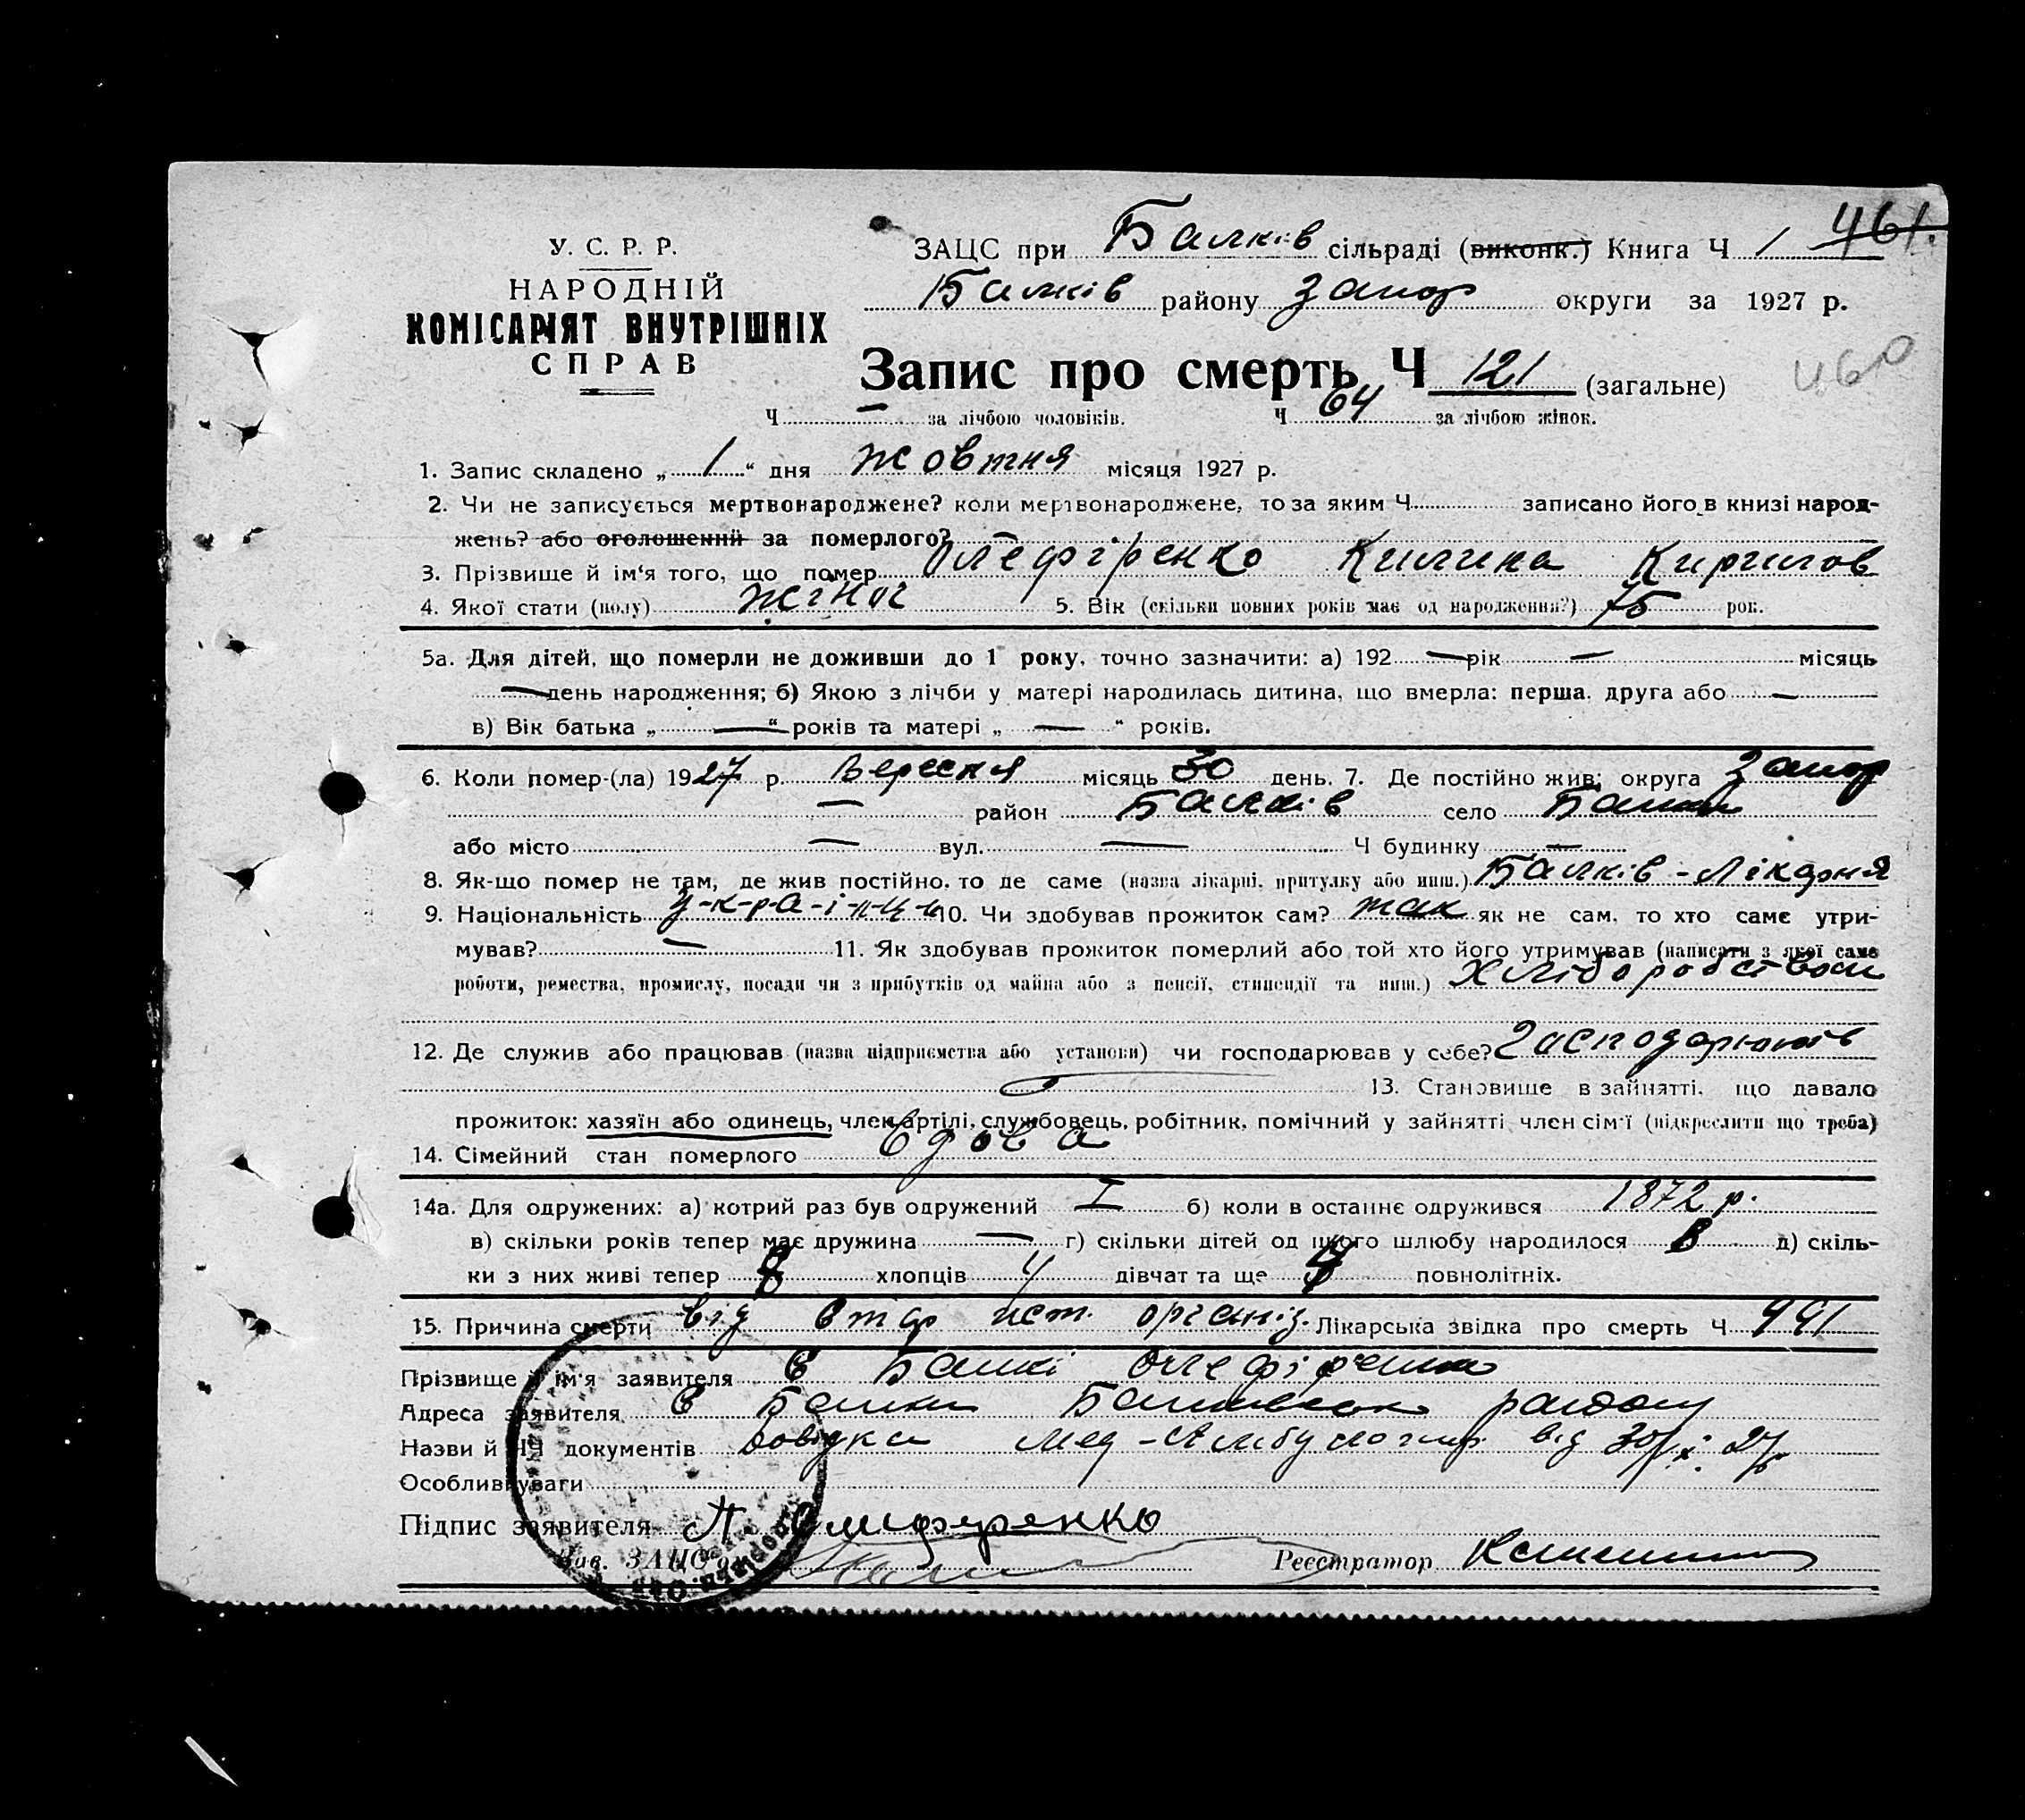 461.
У. С. Р. Р.
НАРОДНІЙ
КОМІСАРІЯТ ВНУТРІШНІХ
СПРАВ
ЗАЦС при Балків сільраді (виконк.) Книга Ч 1
Балків району Запор округи за 1927 р.
460
Запис про смерть Ч 121 (загальне)
Ч — за лічбою чоловіків. Ч 64 за лічбою жінок.
1. Запис складено „ 1 “ дня жовтня місяця 1927 р.
2. Чи не записується мертвонароджене? коли мертвонароджене, то за яким Ч записано його в книзі народ-
жень? або оголошений за померлого?
3. Прізвище й ім'я того, що помер Олефіренко Килина Кирилов
4. Якої стати (полу) жіноч 5. Вік (скільки повних років має од народження?) 75 рок.
5а. Для дітей, що померли не доживши до 1 року, точно зазначити: а) 192 — рік — місяць
— день народження; б) Якою з лічби у матері народилась дитина, що вмерла: перша, друга або —
в) Вік батька „ — “ років та матері „ — “ років.
6. Коли помер-(ла) 1927 р. Вересня місяць 30 день. 7. Де постійно жив: округа Запор
— район Балків село Балки
або місто — вул. — Ч будинку —
8. Як-що помер не там, де жив постійно, то де саме (назва лікарні, притулку або инш.) Балків-Лікарня
9. Національність У-к-р-а-ї-н-ц-и 10. Чи здобував прожиток сам? так як не сам, то хто саме утри-
мував? — 11. Як здобував прожиток померлий або той хто його утримував (написати з якої саме
роботи, ремества, промислу, посади чи з прибутків од майна або з пенсії, стипендії та инш.) Хліборобством
12. Де служив або працював (назва підприємства або установи) чи господарював у себе?
13. Становище в зайнятті, що давало
прожиток: хазяїн або одинець, член артілі, службовець, робітник, помічний у зайнятті член сім'ї (підкреслити що треба)
14. Сімейний стан померлого вдова
14а. Для одружених: а) котрий раз був одружений I б) коли в останнє одружився 1872 р.
в) скільки років тепер має дружина — г) скільки дітей од цього шлюбу народилося 8 д) скіль-
ки з них живі тепер хлопців 4 дівчат та ще повнолітніх.
15. Причина смерти від ст. Лікарська звідка про смерть Ч 991
Прізвище й ім'я заявителя в Балкі Олефіренко
Адреса заявителя в Балки району
Назви й ЧЧ документів Довідка від 30/IX 27
Особливі уваги
Підпис заявителя Олиференко
Зав. ЗАЦС'ом Реєстратор